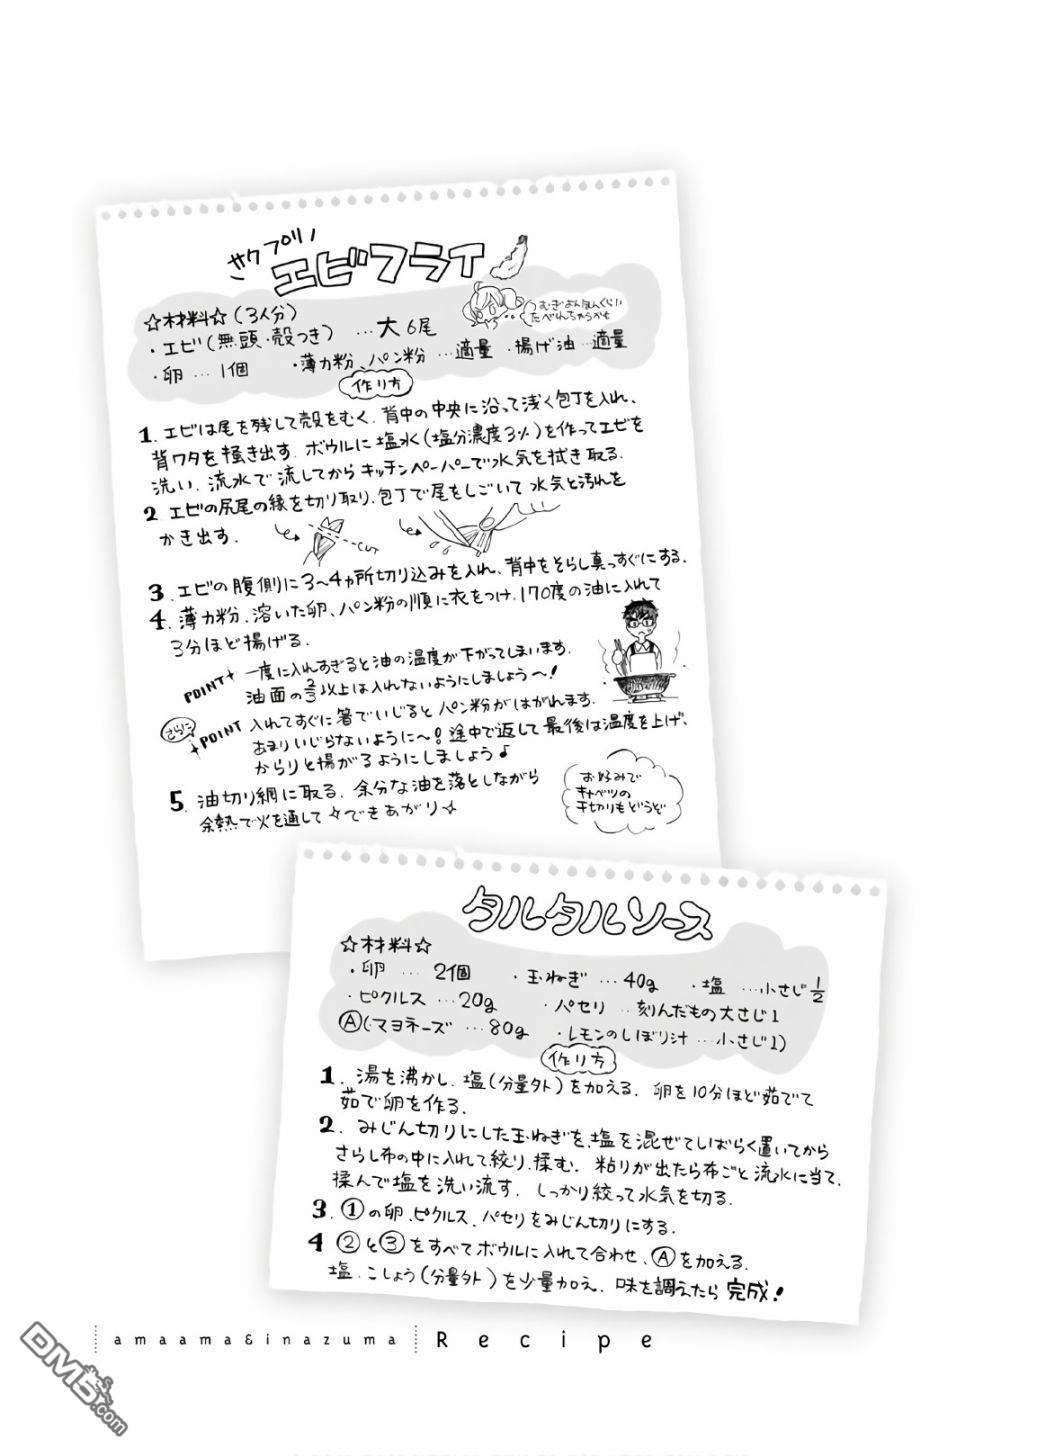 サクプリッ
エビフライ
☆材料☆(3人分)
・エビ(無頭・殻つき) …大6尾
・卵 … 1個 ・薄力粉、パン粉 …適量 ・揚げ油 …適量
むぎよんほんくらい
たべれちゃうかも
作り方
1. エビは尾を残して殻をむく。背中の中央に沿って浅く包丁を入れ、
背ワタを掻き出す。ボウルに塩水(塩分濃度3%)を作ってエビを
洗い、流水で流してからキッチンペーパーで水気を拭き取る。
2 エビの尻尾の縁を切り取り、包丁で尾をしごいて水気と汚れを
かき出す。
CUT
3. エビの腹側に3~4ヵ所切り込みを入れ、背中をそらし真っすぐにする。
4. 薄力粉、溶いた卵、パン粉の順に衣をつけ、170度の油に入れて
3分ほど揚げる。
POINT 一度に入れすぎると油の温度が下がってしまいます。
油面の2/3以上は入れないようにしましょう~!
さらに
POINT 入れてすぐに箸でいじるとパン粉がはがれます。
あまりいじらないように~!途中で返して最後は温度を上げ、
からりと揚がるようにしましょう♪
5. 油切り網に取る。余分な油を落としながら
余熱で火を通して☆できあがり☆
お好みで
キャベツの
千切りもどうぞ
タルタルソース
☆材料☆
・卵 … 2個 ・玉ねぎ … 40g ・塩 …小さじ1/2
・ピクルス …20g ・パセリ …刻んだもの大さじ1
Ⓐ(・マヨネーズ …80g ・レモンのしぼり汁 …小さじ1)
作り方
1. 湯を沸かし、塩(分量外)を加える。卵を10分ほど茹でて
茹で卵を作る。
2. みじん切りにした玉ねぎを、塩を混ぜてしばらく置いてから
さらし布の中に入れて絞り、揉む。粘りが出たら布ごと流水に当て、
揉んで塩を洗い流す。しっかり絞って水気を切る。
3. ①の卵、ピクルス、パセリをみじん切りにする。
4 ②と③をすべてボウルに入れて合わせ、Ⓐを加える。
塩、こしょう(分量外)を少量加え、味を調えたら完成!
amaama&inazuma Recipe
DM5.com